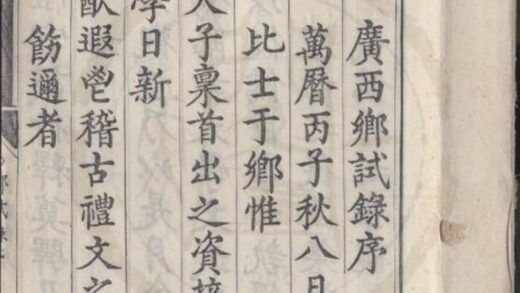 廣西鄉試錄序
萬曆丙子秋八月
比士于鄉惟
天子稟首出之資
學日新
猷遐鬯稽古禮文之
飭邇者